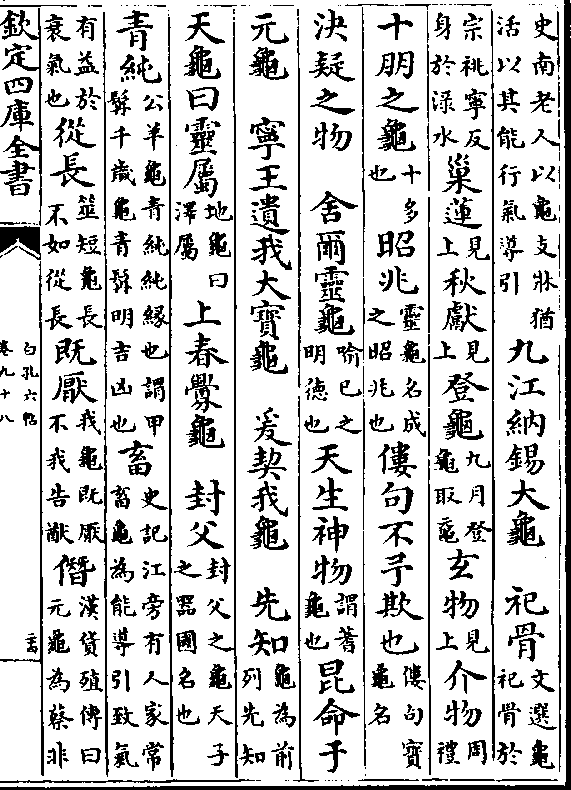 史南老人以龜支牀猶活以其能行氣導引 九江納錫大龜 祀骨文選龜祀骨於
宗祧寧反身於渌水巢蓮見上秋獻見上登龜九月登龜取黿玄物見上介物周禮
十朋之龜十多也昭兆靈龜名成之昭兆也僂句不予欺也僂句寶龜名
決疑之物 舍爾靈龜喻已之明德也天生神物謂蓍龜也昆命于
元龜 寧王遺我大寶龜 爰契我龜 先知龜為前列先知
天龜曰靈屬地龜曰澤屬 上春釁龜 封父封父之龜天子之器國名也
青純公羊龜青純純緣也謂甲髯千歲龜青髯明吉凶也畜史記江旁有人家常畜龜為能導引致氣
有益於衰氣也從長筮短龜長不如從長既厭我龜既厭不我告猷僭漢貨殖傳曰元龜為蔡非
欽定四庫全書
白孔六帖
卷九十八